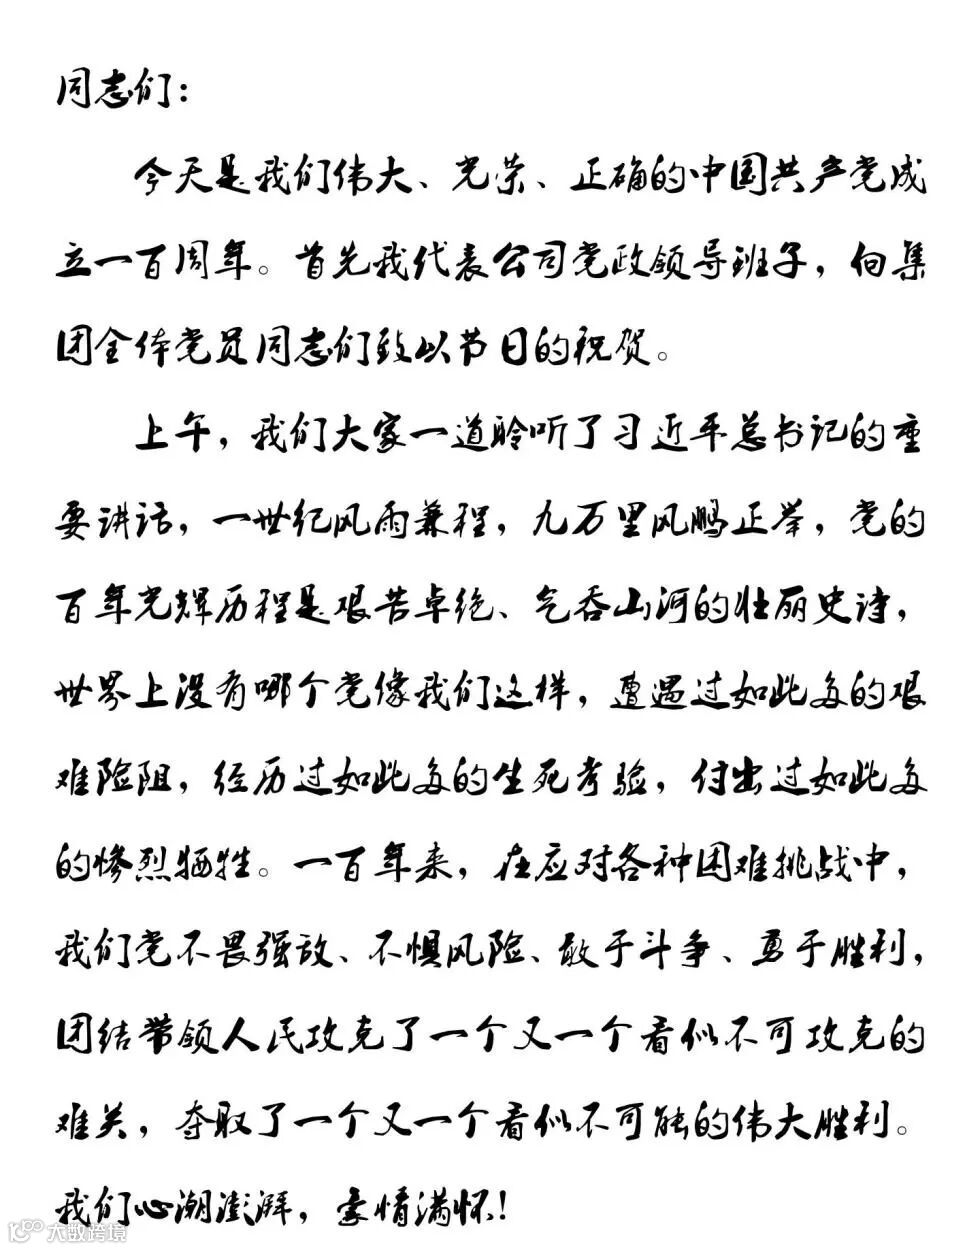 同志们：
今天是我们伟大、光荣、正确的中国共产党成
立一百周年。首先我代表公司党政领导班子，向集
团全体党员同志们致以节日的祝贺。
上午，我们大家一道聆听了习近平总书记的重
要讲话，一世纪风雨兼程，九万里风鹏正举，党的
百年光辉历程是艰苦卓绝、气吞山河的壮丽史诗，
世界上没有哪个党像我们这样，遭遇过如此多的艰
难险阻，经历过如此多的生死考验，付出过如此多
的惨烈牺牲。一百年来，在应对各种困难挑战中，
我们党不畏强敌、不惧风险、敢于斗争、勇于胜利，
团结带领人民攻克了一个又一个看似不可攻克的
难关，夺取了一个又一个看似不可能的伟大胜利。
我们心潮澎湃，豪情满怀！
大数跨境